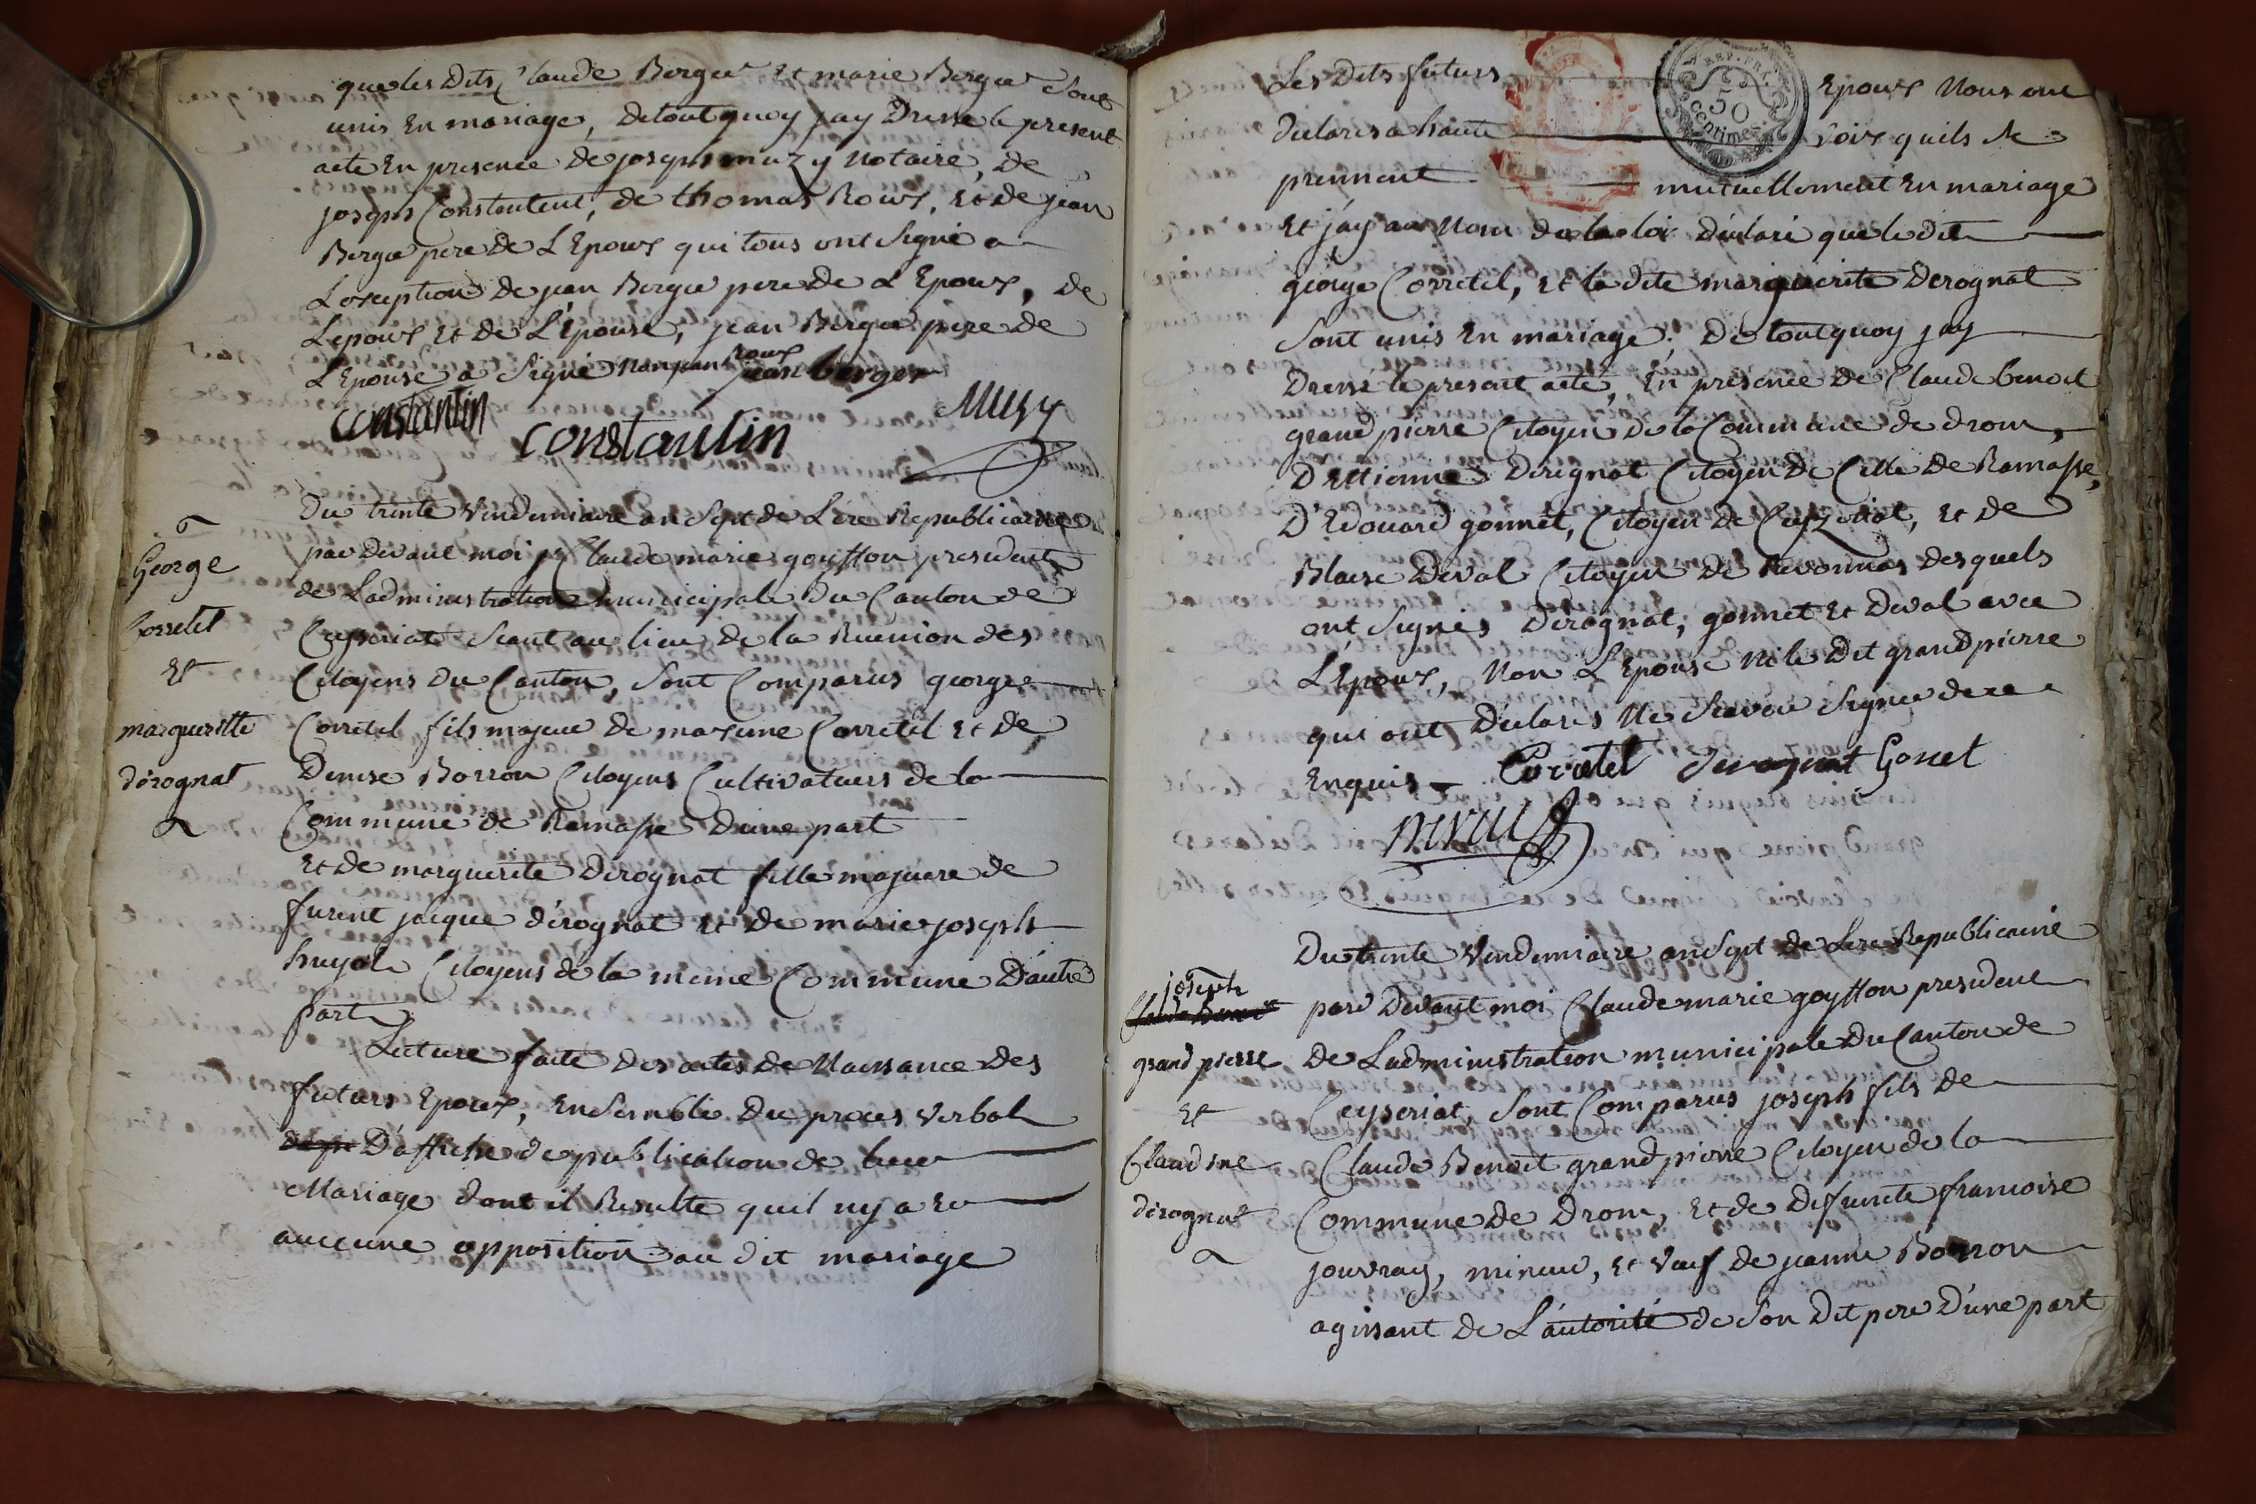 que les Dits Claude Berger Et marie Berger Sont
unis En mariage, de tout quoy jay Dressé le present
acte En presence de joseph muzy Notaire, de
joseph Constentent, de thomas Roux, Et de jean
Berger pere de L Epoux qui tous ont Signé a
Lexception de jean Berger pere de L Epoux, de
Lepoux Et de L'Epouse, jean Berger pere de
L'Epouse a Signé Non jean roux
jean berger
constantin
constantin
Muzy
Du trente Vindemiaire an Sept de L ere Republicaine
par devant moi Claude marie goyffon president
de Ladministration municipale du Canton de
Ceyseriat Séant au lieu de la Reunion des
Citoyens du Canton, Sont Comparus george
Corretel fils majeur de maxime Corretel Et de
Denise Borron Citoyens Cultivateurs de la
Commune de Ramasse D'une part
Et de marguerite Dérognat fille majeure de
furent jacque dérognat et de marie joseph
huyot Citoyens de la meme Commune D'autre
part
Lecture faite des actes de Naissance des
futurs Epoux, Ensemble du proces verbal
D'affiche de publication de leur
Mariage dont il Resulte quil ny a Eu
auccune opposition au dit mariage
George
Corretel
Et
margueritte
dérognat
Les Dits futurs Epoux Nous ont
REP. FRA.
50
centimes
declarés a haute voix quils se
prennent mutuellement En mariage
Et j'ay au Nom de la loi déclaré que le dit
george Corretel, et la dite marguerite Derognat
Sont unis En mariage. De tout quoy jay
Dressé le present acte, En présence de Claude benoit
grand pierre Citoyen de la Commune de drom,
D Ettienne Dérognat Citoyen de Celle de Ramasse,
D Edouard gonnet, Citoyen de Ceyzeriat, Et de
Blaise Deval Citoyen de Revonnas desquels
ont Signés Dérognat, gonnet Et Deval avec
L'Epoux, Non L'Epouse Ni le Dit grand pierre
qui ont Déclarés Ne Savoir Signer de ce
Enquis Corretel derognat Gonet
Du trente Vindemiaire an Sept de Lere Republicaine
par Devant moi Claude marie goyffon president
de Ladministration municipale du Canton de
Ceyseriat, Sont Comparus joseph fils de
Claude Benoit grand pierre Citoyen de la
Commune de Drom, et de défuncte francoise
jouvray, mineur, et veuf de jeanne Borron
agissant de L'autorité de Son Dit pere D'une part
joseph
grand pierre
Et
Claudine
dérognat